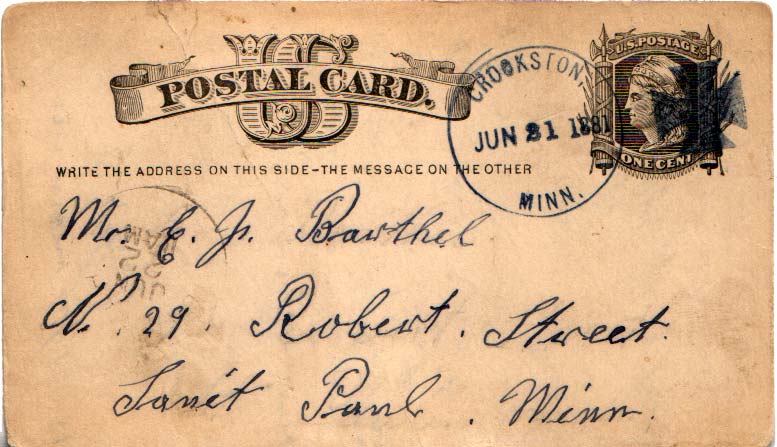 US
POSTAL CARD.
U.S. POSTAGE
ONE CENT
CROOKSTON
JUN 21 1881
MINN.
WRITE THE ADDRESS ON THIS SIDE-THE MESSAGE ON THE OTHER
Mr. E. P. Barthel
N. 29. Robert. Street.
Sanit Paul. Minn.